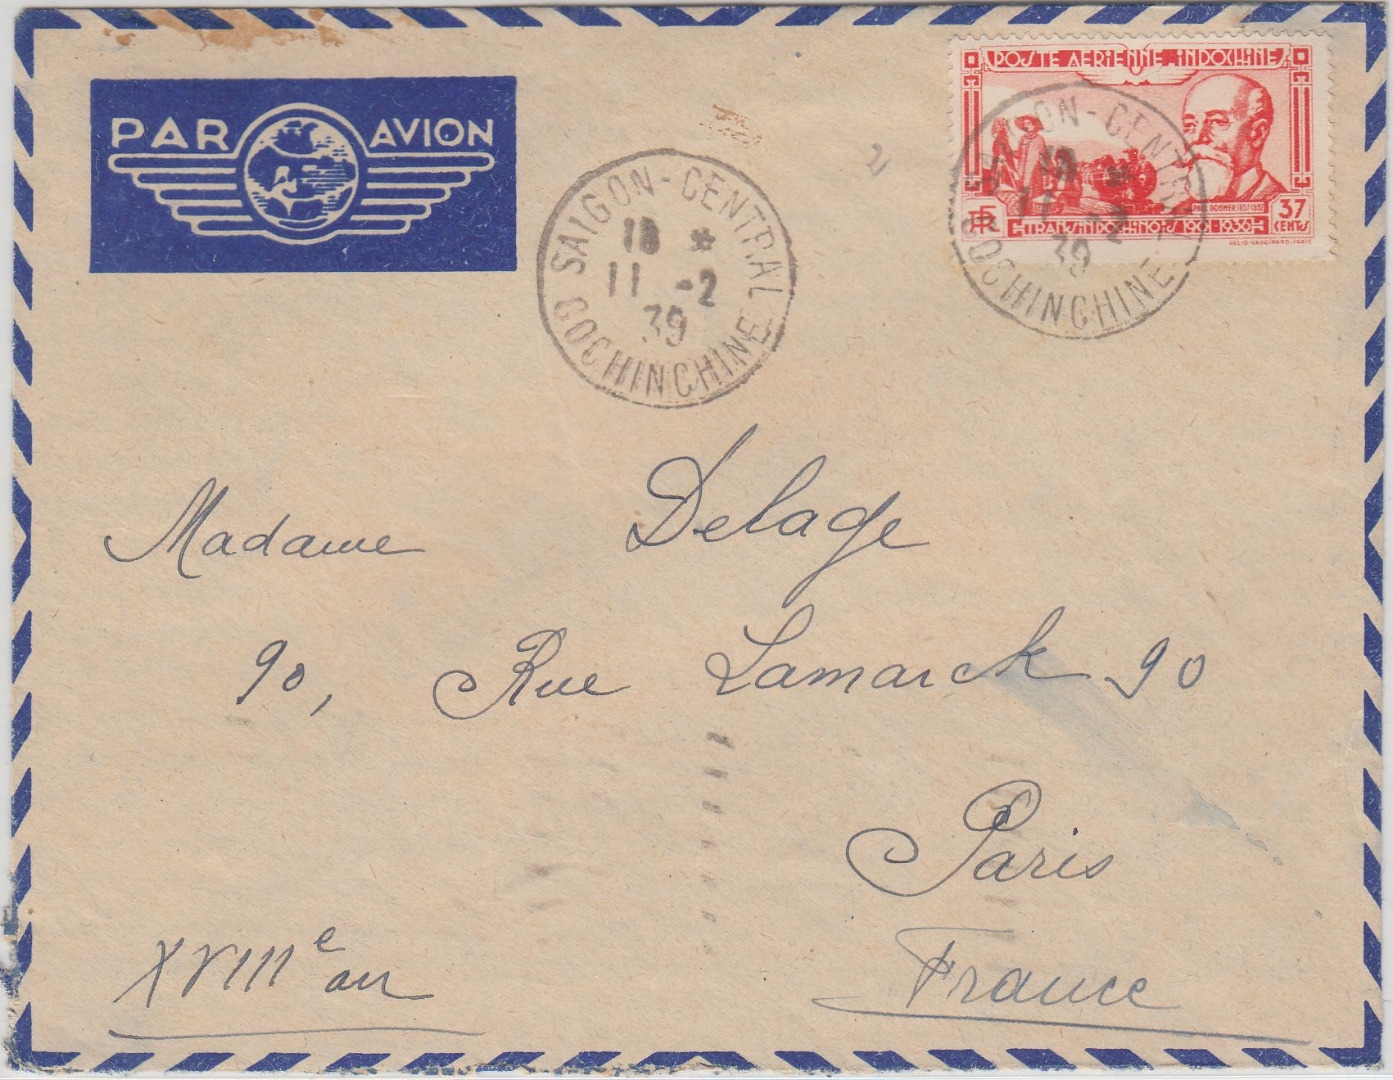 PAR AVION
POSTE AERIENNE INDOCHINE
PAUL DOUMER 1857-1932
RF
37 CENTS
TRANSINDOCHINOIS 1901-1936
HELIO-VAUGIRARD-PARIS
SAIGON-CENTRAL
18 *
11 -2
39
COCHINCHINE
SAIGON-CENTRAL
18 *
11 -2
39
COCHINCHINE
Madame Delage
90, Rue Lamarck 90
Paris
XVIIIe arr
France